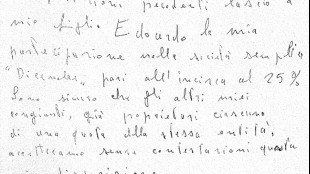 precedenti lascio a
mio figlio Edoardo la mia
partecipazione nella società sempli
"Dicembre", pari all'incirca al 25%
Sono sicuro che gli altri miei
congiunti, già proprietari ciascuno
di una quota della stessa entità,
accetteranno senza contestazioni questa